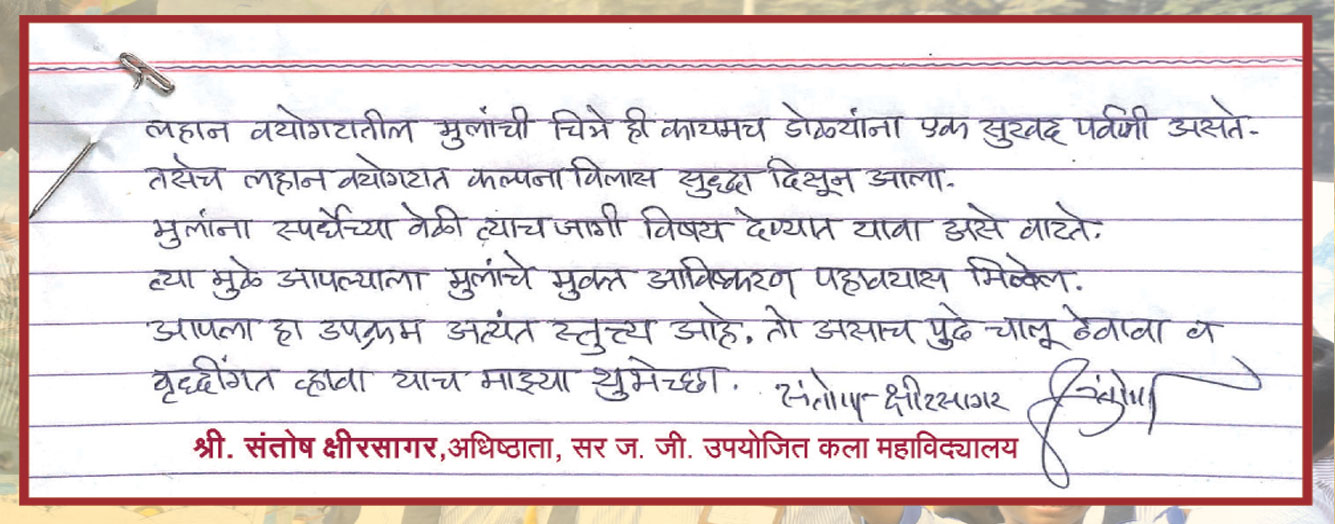 लहान वयोगटातील मुलांची चित्रे ही कायमच डोळ्यांना एक सुखद पर्वणी असते.
तसेच लहान वयोगटात कल्पना विलास सुद्धा दिसून आला.
मुलांना स्पर्धेच्या वेळी त्याच जागी विषय देण्यात यावा असे वाटते.
त्या मुळे आपल्याला मुलांचे मुक्त आविष्करण पहावयास मिळेल.
आपला हा उपक्रम अत्यंत स्तुत्य आहे. तो असाच पुढे चालू ठेवावा व
वृद्धींगत व्हावा याच माझ्या शुभेच्छा. संतोष क्षीरसागर
श्री. संतोष क्षीरसागर,अधिष्ठाता, सर ज. जी. उपयोजित कला महाविद्यालय